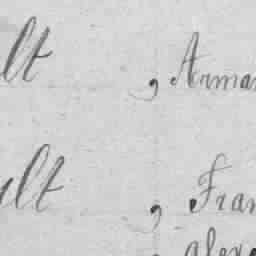 lt , Arma
ult , Fran
alex